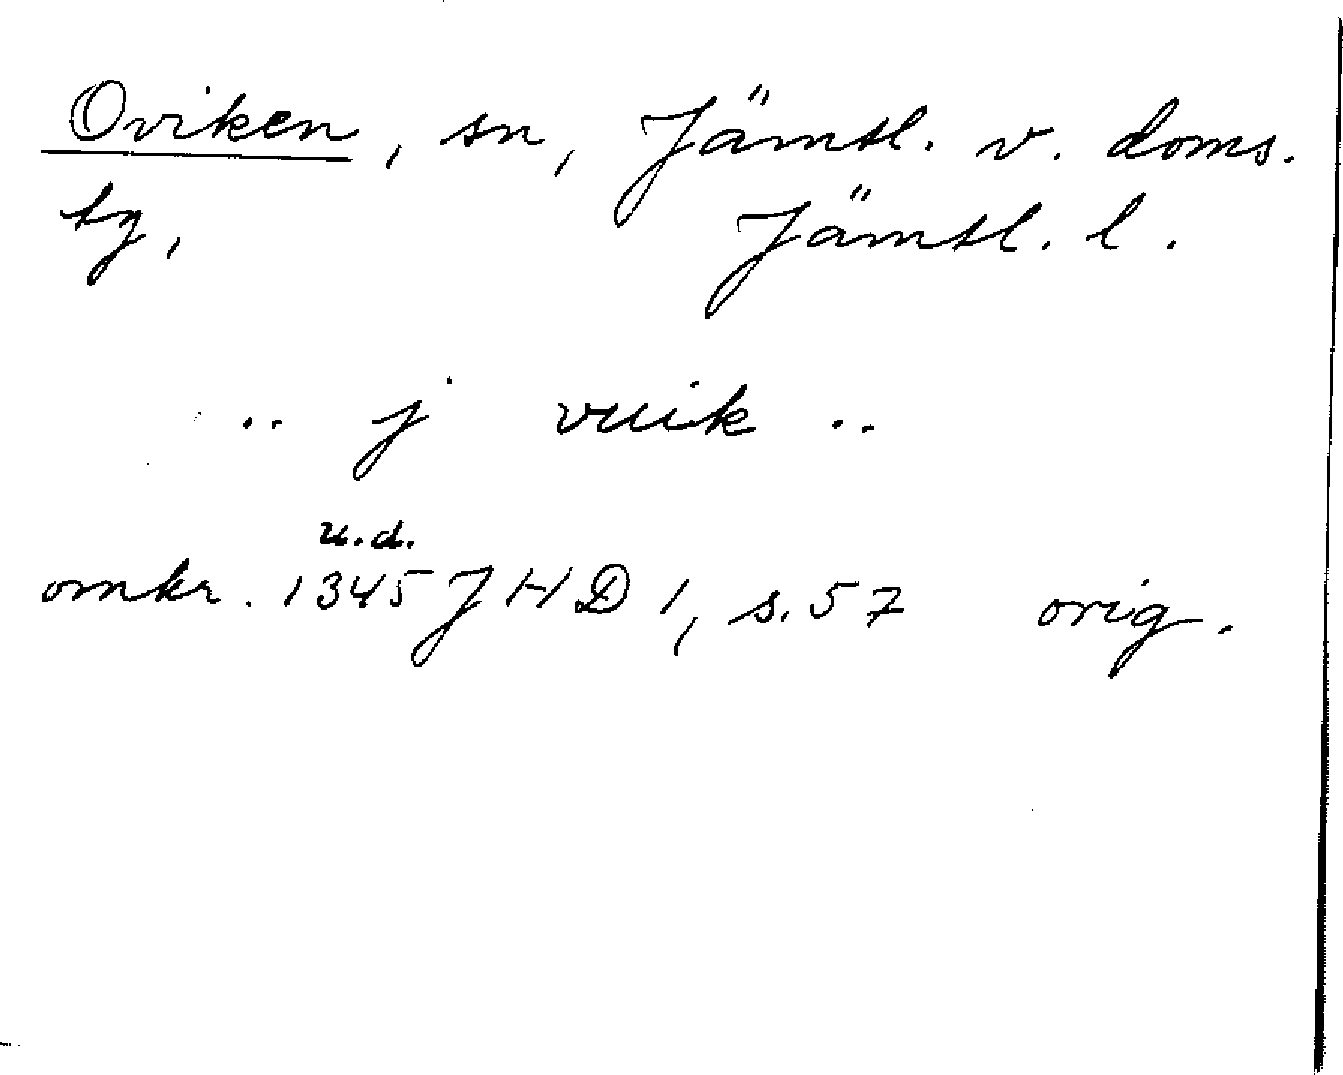 Oviken, sn, Jämtl. v. doms.
tg, Jämtl. l.
.. j vuik ..
u.d.
omkr. 1345 JHD 1, s. 57 orig.